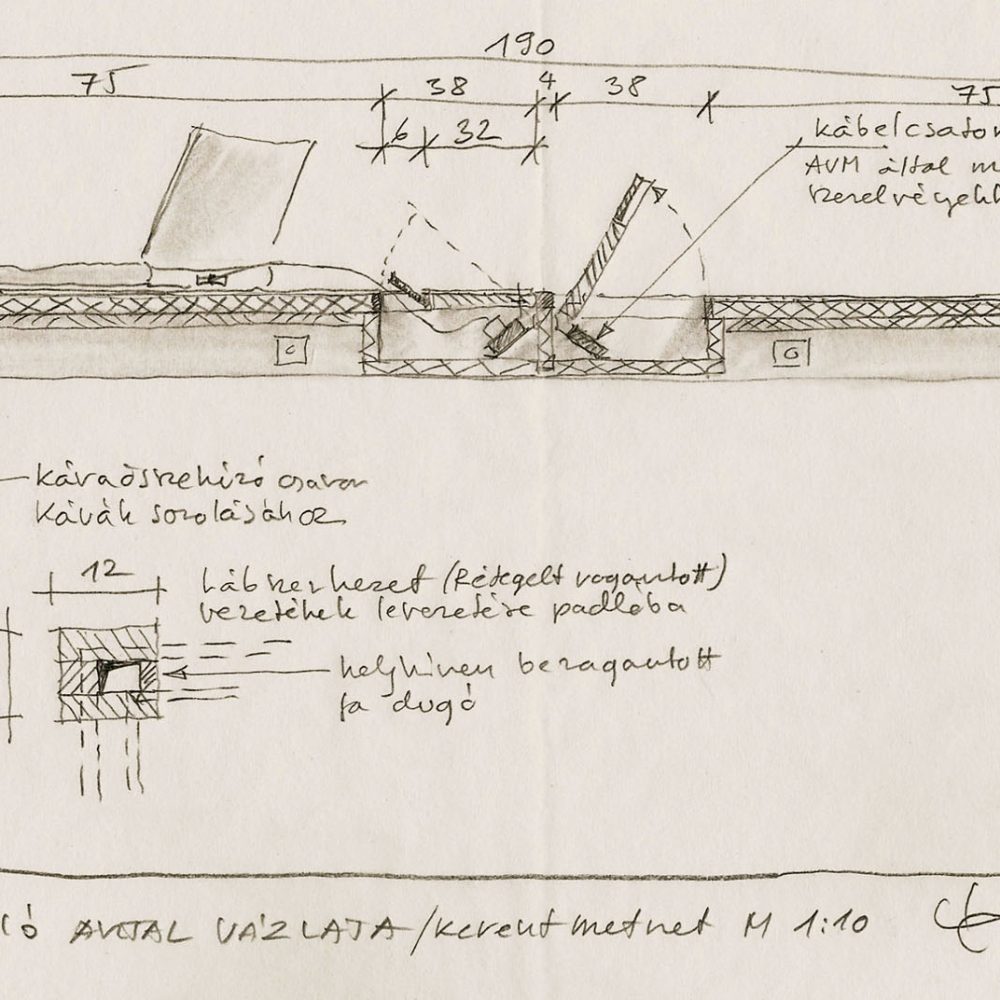 190
75 38 4 38 75
6 32
kábelcsator
AVM által m
szerelvényekk
káva összehúzó csavar
kávák sorolásához
12
Lábszerkezet (Rétegelt ragasztott)
vezetékek levezetése padlóba
helyszínen beragasztott
fa dugó
G G
ló ASZTAL VÁZLATA / keresztmetszet M 1:10